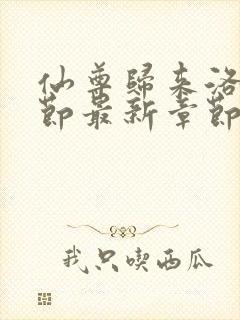 仙尊歸来洛
節最新章節
我只喫西瓜